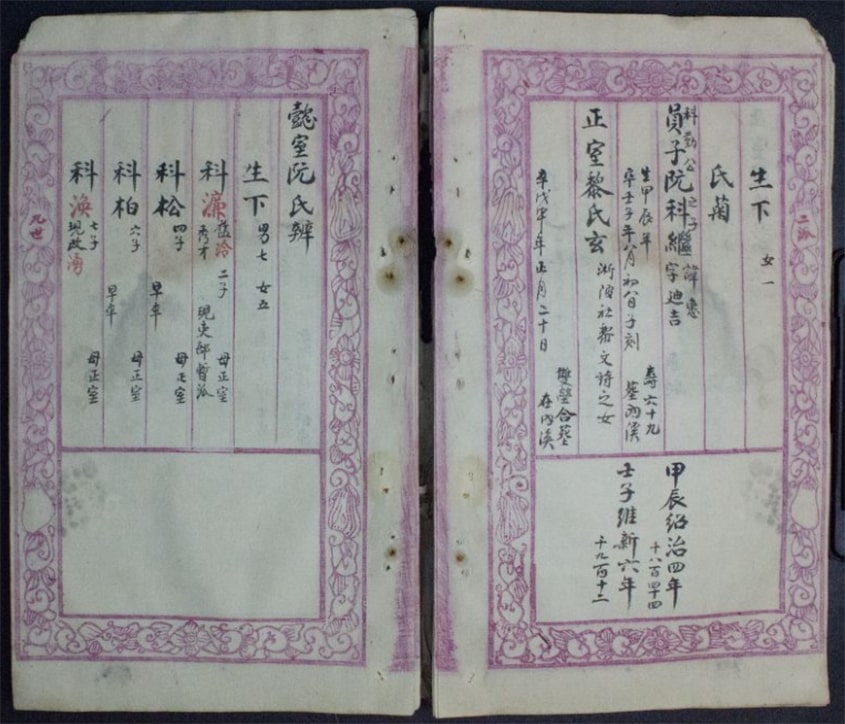 二派
生下
女一
氏菊
科勤公之子
員子阮科繼
諱惠
字迪吉
生甲辰年
卒壬子年八月初八日子刻
壽六十九
葬內溪
正室黎氏玄
浙波社黎文特之女
卒戊午年正月二十日
雙塋合葬
在內溪
甲辰紹治四年
千八百四十四
壬子維新六年
千九百十二
懿室阮氏辨
生下
男七 女五
科濂
舊洽
秀才
二子
現吏部暫派
母正室
科松
四子
早卒
母正室
科柏
六子
早卒
母正室
科渙
七子
現改湧
母正室
九世